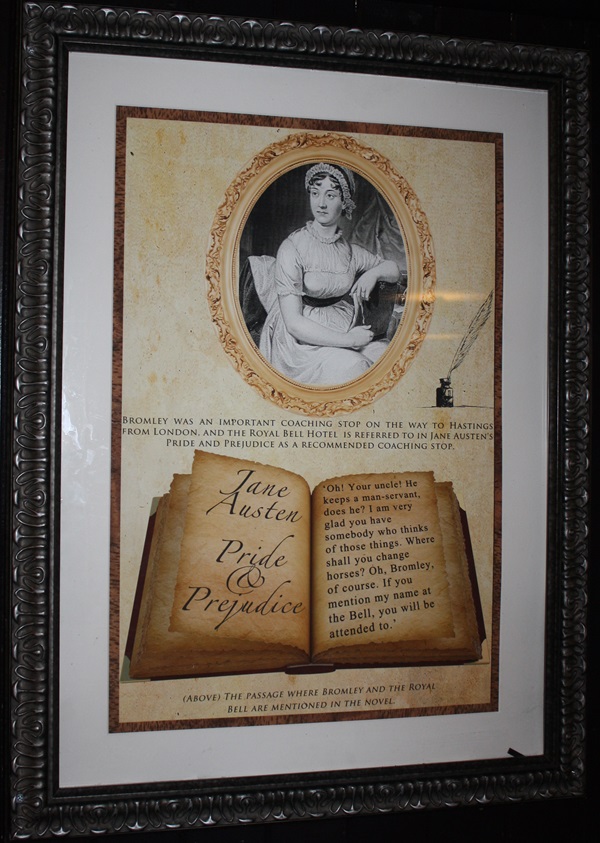 Bromley was an important coaching stop on the way to Hastings
from London, and the Royal Bell Hotel is referred to in Jane Austen's
Pride and Prejudice as a recommended coaching stop.
Jane
Austen
Pride
&
Prejudice
'Oh! Your uncle! He
keeps a man-servant,
does he? I am very
glad you have
somebody who thinks
of those things. Where
shall you change
horses? Oh, Bromley,
of course. If you
mention my name at
the Bell, you will be
attended to.'
(Above) The passage where Bromley and the Royal
Bell are mentioned in the novel.